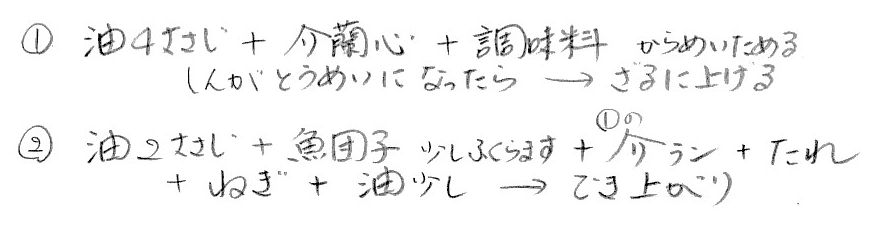 ① 油4大さじ + 介蘭心 + 調味料 からめいためる
しんがとうめいになったら → ざるに上げる
② 油2大さじ + 魚団子 少しふくらます + ①の介ラン + たれ
+ ねぎ + 油少し → でき上がり